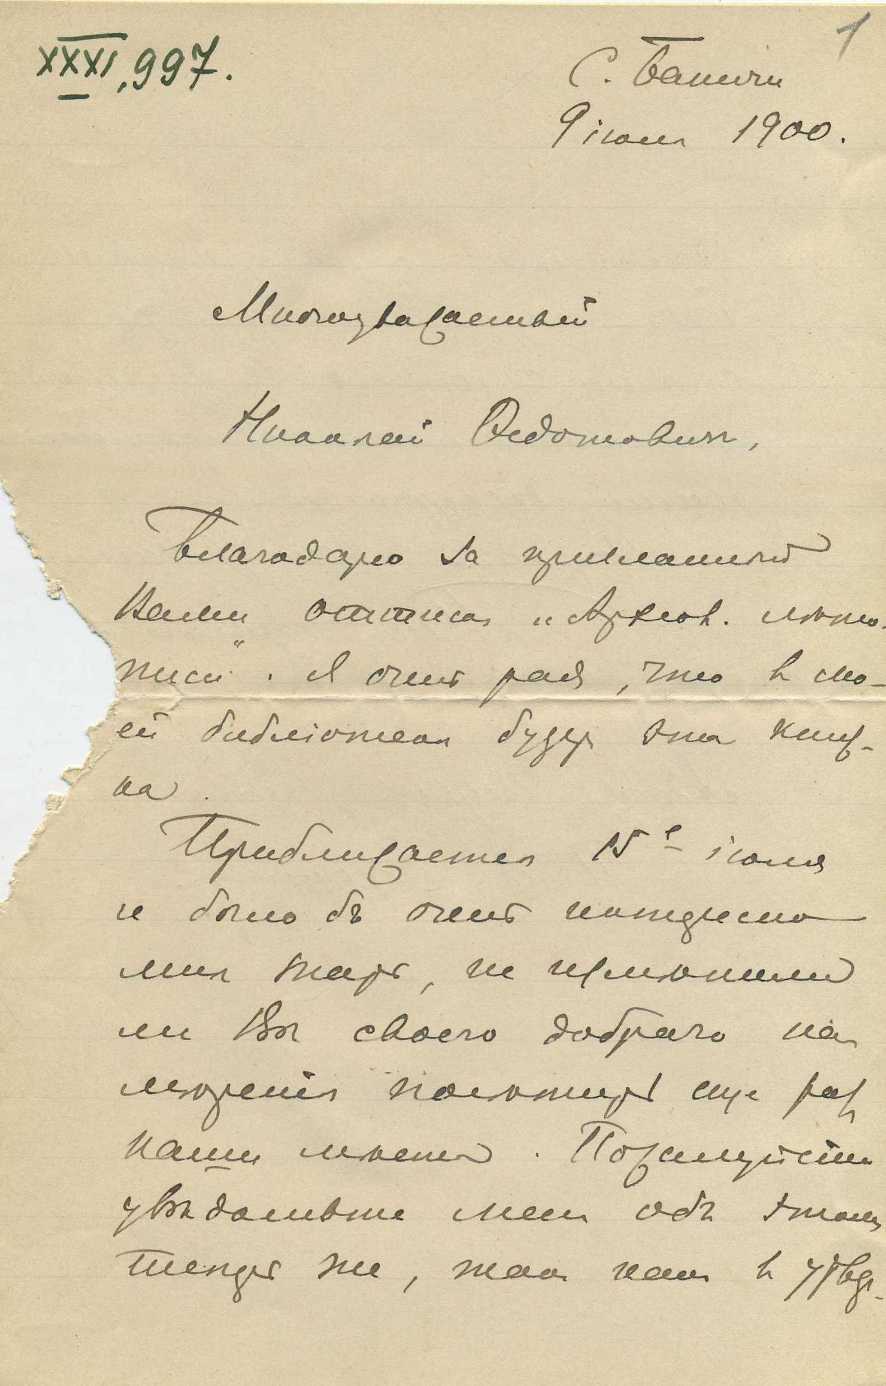 1
XXXI, 997.
С. Бамичи
9 iюля 1900.
Многоуважаемый
Николай Федотович,
Благодарю за присланный
Вами оттиск „Археол. лѣто-
писи". Я очень радъ, что въ мо-
ей библiотекѣ будетъ эта книж-
ка.
Приближается 15е iюля
и было бъ очень интересно
мнѣ знать, не измѣнили
ли Вы своего добраго на
мѣренiя посѣтить еще разъ
наши мѣста. Пожалуйста
увѣдомьте меня объ этомъ
теперь же, такъ какъ